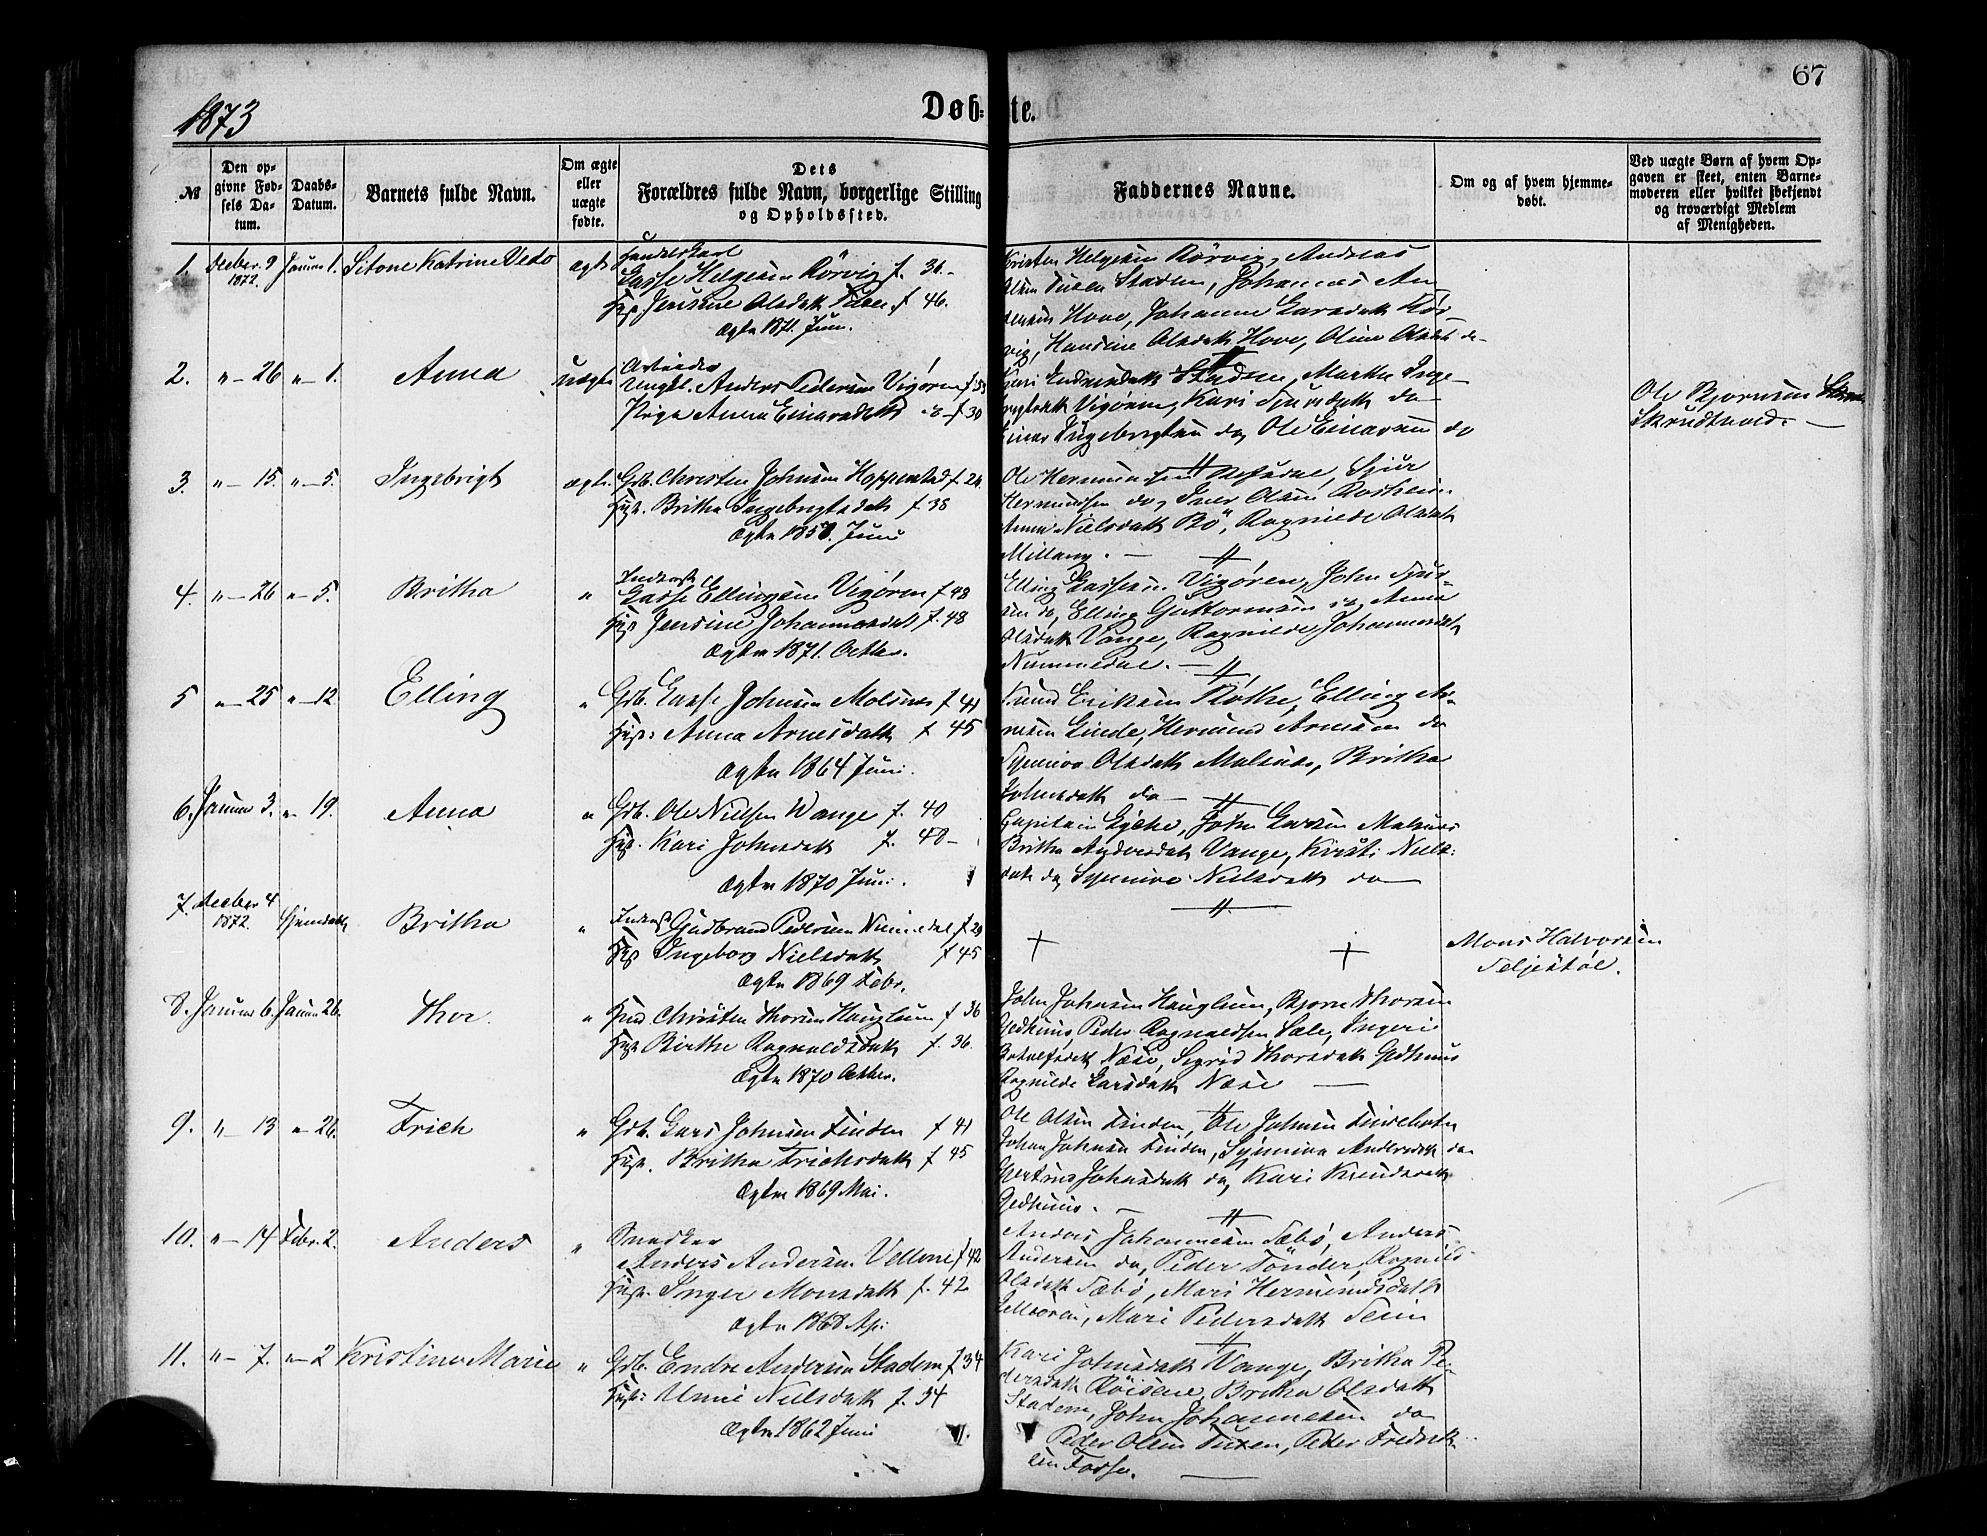 67
1873
Døb-te.
№
Den op-
givne Fød-
sels Da-
tum.
Daabs-
Datum.
Barnets fulde Navn.
Om ægte
eller
uægte
fødte.
Dets
Forældres fulde Navn, borgerlige Stilling
og Opholdssted.
Faddernes Navne.
Om og af hvem hjemme-
døbt.
Ved uægte Børn af hvem Op-
gaven er skeet, enten Barne-
moderen eller hvilket bekjendt
og troværdigt Medlem
af Menigheden.
1. Decber. 9 1872. Januar 1.
ægte
Lasse Helgesen Rørvig f. 31.
Jensine Olsdatt f 46.
Ægtev 1871. Juni.
Kristen Helgesen Rørvig, Andreas
Olsen Tuxen Stadem, Johannes An
dersen Hove, Johanne Larsdatt Rør
vig, Handine Olsdatt Hove, Oline Olsdatt do-
2. " - 26 " - 1. Anna uægte
Arbeider
Ungk. Anders Pedersen Vigøren
Pige Anna Einarsdatt f 30
Kari Endresdatt Stadem, Marthe Inge-
brigtsdatt Vigøren, Kari Sjursdatt do
Einar Ingebrigtsen do, Ole Einarsen do
Ole Bjørnsen
Skrudtvold. -
3. " - 15. " - 5. Ingebrigt ægte.
Gdb. Christen Johnsen Hoppenstad f 24
Hust. Britha Ingebrigtsdatt f. 38
Ægtev 1858. Juni
Ole Hermundsen Refsdal, Sjur
Hermundsen do, Iver Olsen Rosheim
Anna Nielsdatt Bö, Ragnilde Olsdatt
Millang. -
4. " - 26 " - 5. Britha "
Inderst
Lasse Ellingsen Vigøren f 48
Hust Jensine Johannesdatt f. 48
Ægtev 1871. Octber.
Elling Lassesen Vigøren, John Sjur-
sen do, Elling Guttormsen do, Anna
Olsdatt Vange, Ragnilde Johannesdatt
Nummedal. -
5 " - 25 " - 12. Elling "
Gdb. Lasse Johnsen Molsnes f 41
Hust: Anna Arnesdatt f 45
Ægtev 1864 Juni.
Knud Eriksen Røthe, Elling Ar-
nesen Linde, Hermund Arnesen do
Synneva Olsdatt Malsnes, Britha
Johnsdatt do -
6. Januar 3. " - 19. Anna "
Gdb. Ole Nielsen Wange f. 40
Hust. Kari Johnsdatt f. 40 -
Ægtev 1870 Juni.
Capitain Lyche, John Larsen Malsnes
Britha Andersdatt Vange, Kirsti Niels-
datt do Synneva Nielsdatt do
7. Decber 4 1872. Hjemdøbt Britha "
Inderst Gudbrand Pedersen Nummedal f 29
Hust Ingeborg Nielsdatt f 45
Ægtev 1869 Febr.
Mons Halvorsen
Seljestøl.
8. Januar 6. Januar 26. Thor. "
Christen Thorsen Hauglum f 36
Hust Birthe Ragnaldsdatt f. 36.
Ægtev 1870 Octber.
John Johnsen Hauglum, Bjørn Thorsen
Gedhuus Peder Ragnaldsen Sæle, Ingeri
Botolfsdatt Næse, Sigrid Thorsdatt Gedhuus
Ragnilde Larsdatt Næse
9. " - 13 " - 26. Erich "
Gdb. Lars Johnsen Finden f 41
Hust. Britha Erichsdatt f 45
Ægtev 1869 Mai.
Ole Olsen Finden, Ole Johnsen Findebotn
Johan Johnsen Finden, Synneva Andersdatt do
Gertrud Johnsdatt do, Kari Knudsdatt
Gedhuus. -
10. " - 14 Febr. 2. Anders "
Snedker
Anders Andersen Vellene f 42
Hust. Inger Monsdatt f. 42
Ægtev 1868 Apr:
Anders Johannesen Sæbø, Anders
Andersen do, Peder Tønder, Ragnild
Olsdatt Sæbø, Mari Hermundsdatt
Mari Pedersdatt
11. " - 7. " - 2 Kristine Marie "
Gdb. Endre Andersen Stadem f 34
Hust: Unni Nielsdatt f. 34
Ægtev 1862 Juni
Kari Johnsdatt Vange, Britha Pe-
dersdatt Röisene Britha Olsdatt
Stadem, John Johannesen do
Peder Olsen Tuxen, Peter Fredrik
sen Fosse.